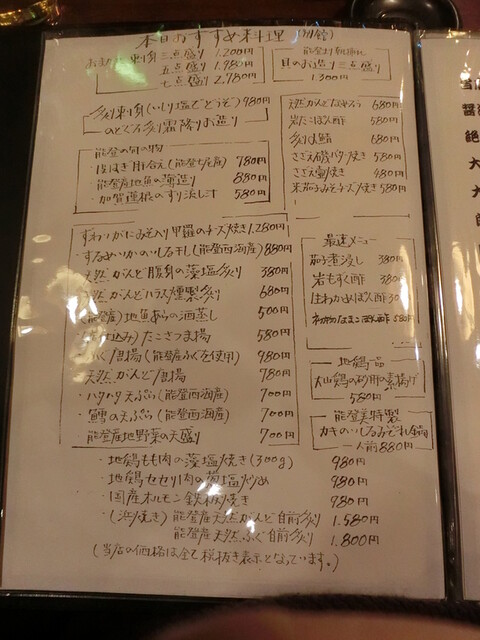 本日のおすすめ料理 (別館)
おまかせ刺身三点盛り 1.200円
五点盛り 1.980円
七点盛り 2.780円
貝のお造り三点盛り
1300円
炙り刺身(いしり塩でどうぞ) 980円
のどぐろ炙り霜降りお造り
能登の旬の物
肝合え(能登七尾産) 780円
・能登産地魚の薄造り 880円
・加賀蓮根のすり流し汁 580円
天然がんど 680円
岩だこぽん酢 580円
炙り〆鯖 680円
さざえ磯バター焼き 580円
さざえ壷焼き 480円
米茄子みそチーズ焼き 580円
ずわいがにみそ入り甲羅のチーズ焼き 1.280円
・するめいかのいしる干し(能登西海産) 880円
天然がんど腹身の藻塩炙り 380円
天然がんどハラス燻製炙り 680円
(能登産)地魚あらの酒蒸し 500円
たこさつま揚 580円
ふぐ唐揚(能登産ふぐを使用) 980円
天然がんど唐揚 780円
・ハタハタ天ぷら(能登西海産) 700円
・鱈の天ぷら(能登西海産) 700円
能登産地野菜の天盛り 700円
最速メニュー
茄子煮浸し 380円
岩もずく酢 380円
生わかめぽん酢
なまこぽん酢 580円
地鶏一品
大山鶏の砂肝の素揚げ
580円
能登美特製
カキのいしるみぞれ鍋
一人前 880円
・地鶏もも肉の藻塩焼き(300g) 980円
・地鶏セセリ肉の葱塩炒め 980円
・国産ホルモン鉄板焼き 980円
・(浜焼き) 能登産天然がんど自前炙り 1.580円
能登産天然ふぐ自前炙り 1.800円
(当店の価格は全て税抜き表示となっています。)
醤
絶
大